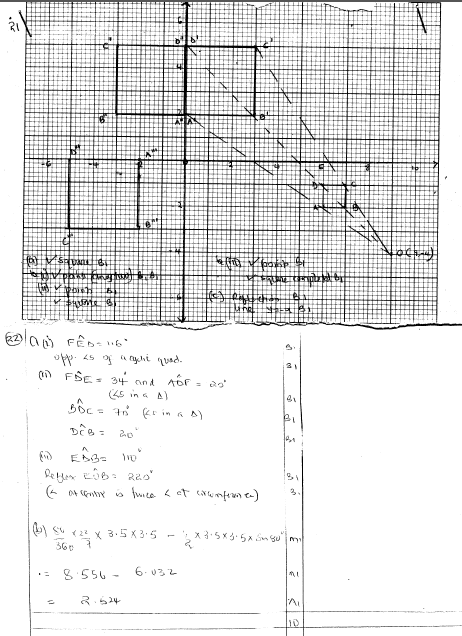 21
6
C" D" D' C'
4
B" A" A' B'
2
-6 -4 2 4 6 8 10
D'" A'"
D C
A B
-2
C'" B'"
-4
O (9,-4)
(a) ✓ square B1
b (i) ✓ points B1 B1
(ii) ✓ points B1
✓ square B1
b (iii) ✓ points B1
✓ square completed B1
(c) Reflection B1
line y=-x B1
22 (a) (i) FÊD = 116° B1
opp. <s of cyclic quad. B1
(ii) FD̂E = 34° and AD̂F = 20°
(<s in a Δ) B1
BD̂C = 70° (<s in a Δ) B1
DĈB = 20° B1
(iii) ED̂B = 110°
Reflex EÔB = 220° B1
(< at centre is twice < at circumference)
(b) /360 x 22/7 x 3.5 x 3.5 - 1/2 x 3.5 x 3.5 x Sin 80° M1
= 8.556 - 6.032 A1
= 2.524 A1
10